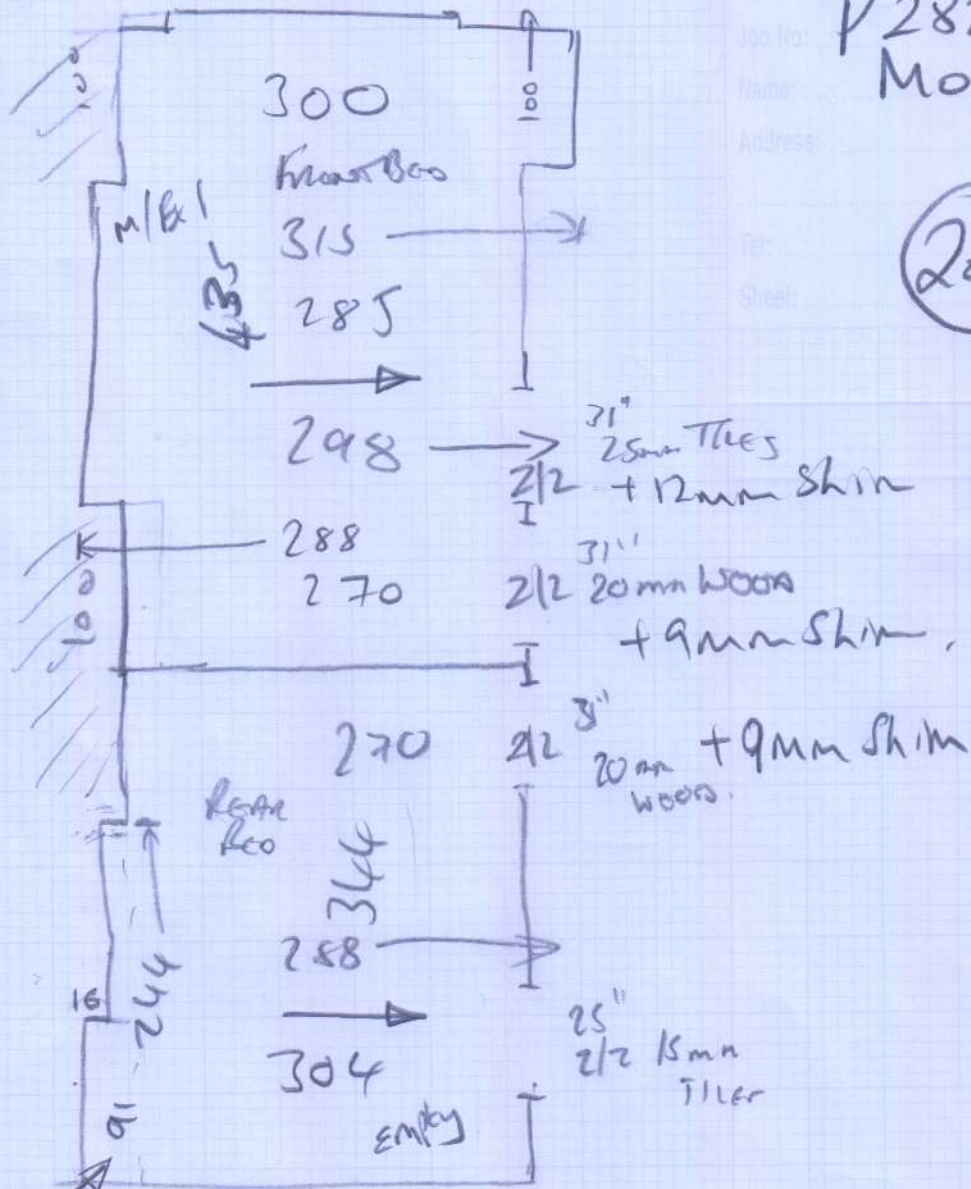 Job No: P 282
Name: Mo
Address:
Tel:
Sheet:
100
300
100
Front Bed
M/Ex
315
435
285
298
31"
25mm Tiles
2/2 + 12mm Shim
288
100
270
31"
2/2 20mm Wood
+ 9mm Shim.
270
2/2
31"
20mm + 9mm Shim
Wood.
Rear
Bed
344
288
244
16
25"
2/2 15mm
Tiles
304
91
empty